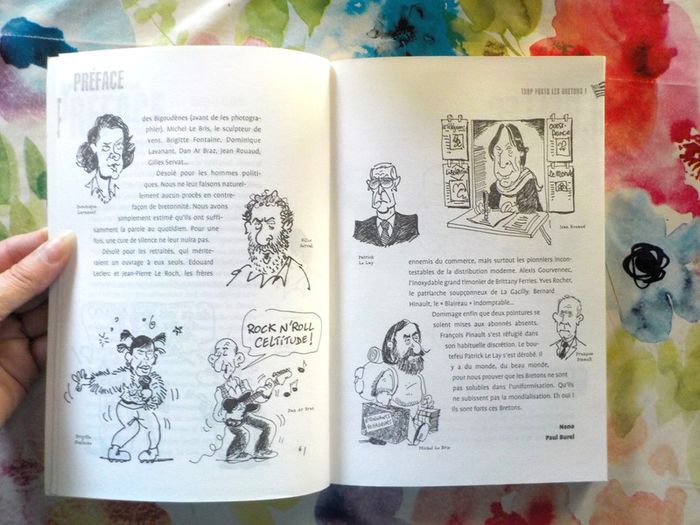 PRÉFACE
des Bigoudènes (avant de les photogra-
phier). Michel Le Bris, le sculpteur de
vent. Brigitte Fontaine, Dominique
Lavanant, Dan Ar Braz, Jean Rouaud,
Gilles Servat...
Désolé pour les hommes politi-
ques. Nous ne leur faisons naturel-
lement aucun procès en contre-
façon de bretonnité. Nous avons
simplement estimé qu'ils ont suffi-
samment la parole au quotidien. Pour une
fois, une cure de silence ne leur nuira pas.
Désolé pour les retraités, qui mérite-
raient un ouvrage à eux seuls. Edouard
Leclerc et Jean-Pierre Le Roch, les frères
Dominique
Lavanant
Gilles
Servat
ROCK N'ROLL
CELTITUDE!
Brigitte
Fontaine
Dan Ar Braz
6
TROP FORTS LES BRETONS !
Le Monde
Jean Rouaud
Patrick
Le Lay
ennemis du commerce, mais surtout les pionniers incon-
testables de la distribution moderne. Alexis Gourvennec,
l'inoxydable grand timonier de Brittany Ferries. Yves Rocher,
le patriarche soupçonneux de La Gacilly. Bernard
Hinault, le « Blaireau » indomptable...
Dommage enfin que deux pointures se
soient mises aux abonnés absents.
François Pinault s'est réfugié dans
son habituelle discrétion. Le bou-
tefeu Patrick Le Lay s'est dérobé. Il
y a du monde, du beau monde,
pour nous prouver que les Bretons ne sont
pas solubles dans l'uniformisation. Qu'ils
ne subissent pas la mondialisation. Eh oui !
ils sont forts ces Bretons.
François
Pinault
ETONNANTS
VOYAGEURS
Michel Le Bris
Nono
Paul Burel